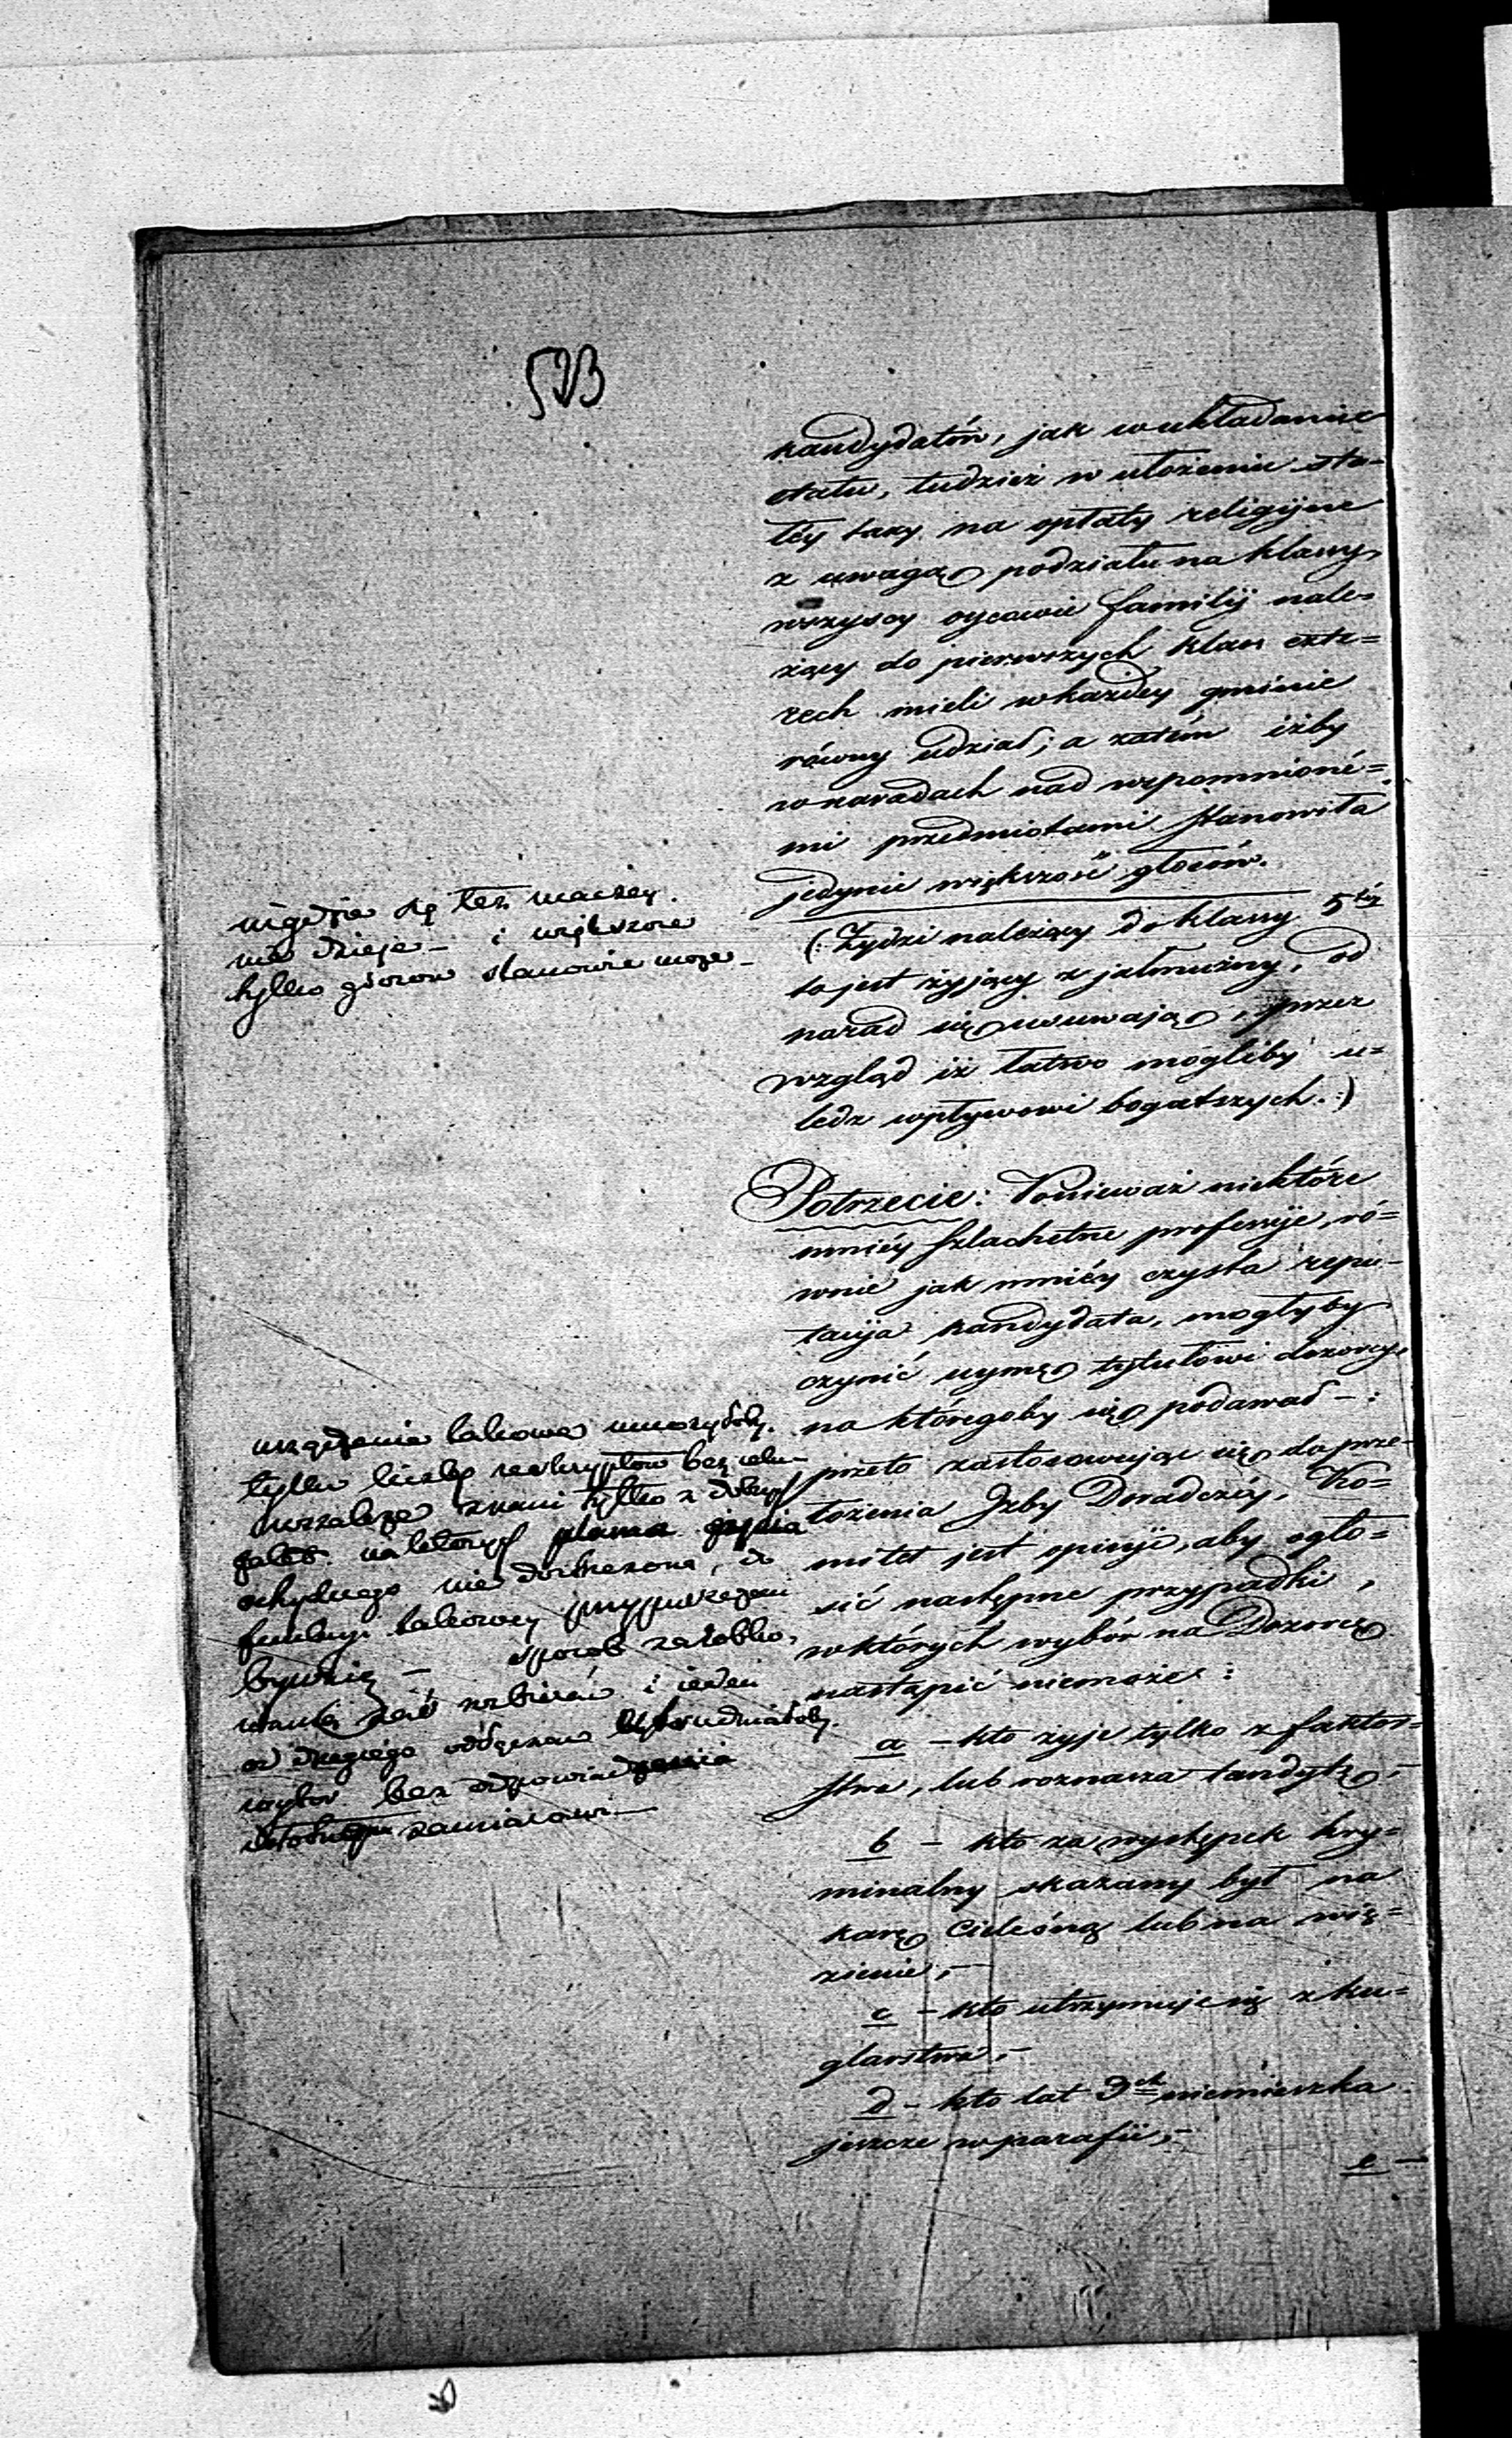 523
kandydatów, jak w układanie
etatu, tudzież w ułożeniu sta-
łéy taxy na opłaty religijne
z uwagą podziału na klassy,
wszyscy oycowie familij nale-
żący do pierwszych klass czte-
rech mieli w każdéy gminie
równy udział; a zatém iżby
w naradach nad wspomnioné-
mi przedmiotami stanowiła
jedynie większość głosów.
(: Żydzi należący do klassy 5téy
to jest żyjący z jałmużny, od
narad się usuwają, przez
wzgląd iż łatwo mogliby u-
ledz wpływowi bogatszych. :)
Potrzecie: Ponieważ niektóre
mniéy szlachetne professyje, ró-
wnie jak mniéy czysta repu-
tacyja kandydata, mogłyby
czynić uymę tytułowi dozorcy,
na któregoby się podawał - :
przeto zastosowując się do prze-
łożenia Izby Doradczéy, Ko-
mitet jest opinije, aby ogło-
sić następne przypadki,
w których wybór na Dozorcę
nastąpić niemoże:
a - kto żyje tylko z faktor-
stwa, lub roznasza tandytę, -
b - kto za występek kry-
minalny skazany był na
karę Cieleśną lub na wię-
zienie, -
c - kto utrzymuje się z ku-
glarstwa, -
d - kto lat 3ch niemieszka
jeszcze w parafii, -
e -
nigdzie się też inaczey
nie dzieje - i większość
tylko głosów stanowić może -
urządzenie takowe mnożyłoby
tylko liczbę reskryptów bez celu -
wszakże znani tylko z dobrych
zalet na których plama życia
ohydnego nie dostrzeżona, do
funkcyi takowey przypuszczeni
bydź - sposób zarobko-
wania zaś rozbierać i ieden
od drugiego odłączać utrudniałoby
wybór bez odpowiedzenia
istotnemu zamiarowi -